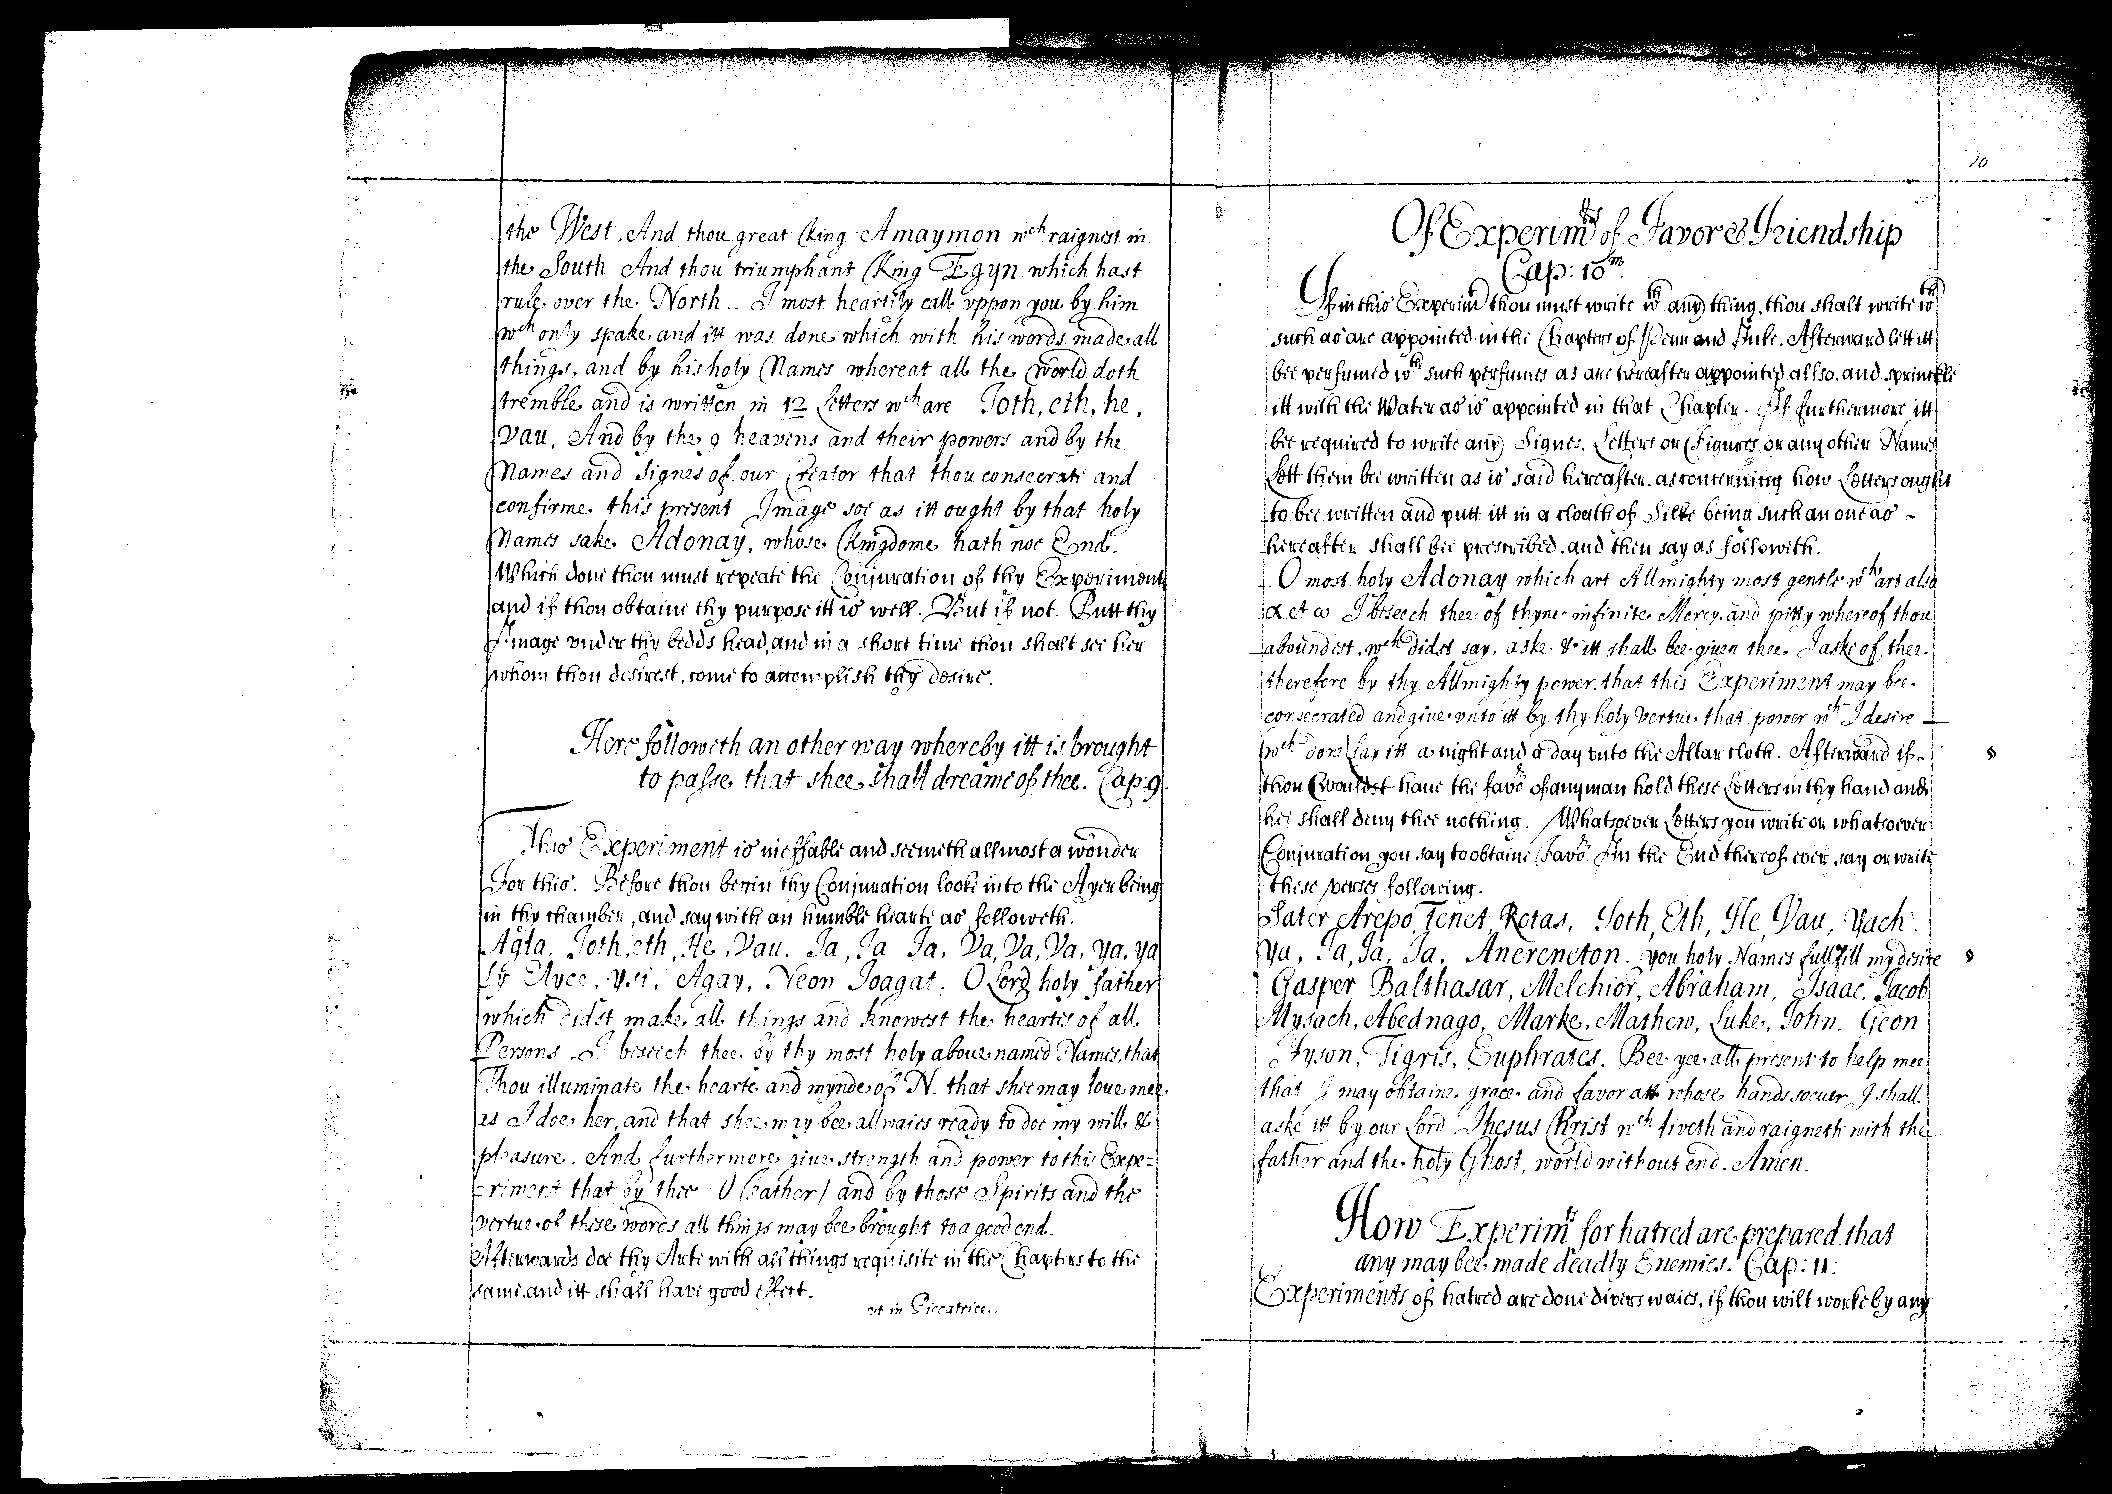 the West. And thou great King Amaymon wch raignest in
the South And thou triumphant King Egyn which hast
rule over the North.. I most heartily call vppon you by him
wch only spake and itt was done which with his words made all
things, and by his holy Names whereat all the World doth
tremble and is written in 12 Letters wch are Joth, eth, he,
Vau, And by the 9 heavens and their powers and by the
Names and Signes of our Creator that thou consecrate and
confirme this present Image soe as itt ought by that holy
Names sake Adonay, whose Kingdome hath noe End.
Which done thou must repeate the Conjuration of thy Experiment
and if thou obtaine thy purpose itt is well. But if not. Putt thy
Image vnder thy bedds head, and in a short time thou shalt see her
whom thou desirest, come to accomplish thy desire.
Here followeth an other way whereby itt is brought
to passe that shee shall dreame of thee. Cap: 9
This Experiment is ineffable and seemeth allmost a wonder
For this. Before thou begin thy Conjuration looke into the Ayer being
in thy chamber, and say with an humble hearte as followeth.
Agla, Joth, eth, He, Vau. Ja, Ja Ja, Va, Va, Va, ya, ya
Ayee, ysi, Agay, Neon Joagat. O Lord holy father
which didst make all things and knowest the heartes of all
Persons I beseech thee by thy most holy aboue named Names, that
Thou illuminate the hearte and mynde of N. that shee may loue mee
as I doe her, and that shee may bee allwaies ready to doe my will &
pleasure. And furthermore giue strength and power to this Expe=
=riment that by thee (O father) and by those Spirits and the
vertue of these words all things may bee brought to a good end.
Afterwards doe thy Arte with all things requisite in the Chapters to the
same, and itt shall have good effect.
vt in Piccatrice..
70
Of Experimts of Favor & Friendship
Cap: 10m
If in this Experimt thou must write wth any thing, thou shalt write wth
such as are appointed in the Chapters of Penn and Inke. Afterward lett itt
bee perfumed wth such perfumes as are hereafter appointed allso. and sprinckle
itt with the Water as is appointed in that Chapter. If furthermore itt
bee required to write any Signes, Letters or Figures or any other Names
Lett them bee written as is said hereafter. as concerning how Letters ought
to bee written and putt itt in a cloath of Silke being such an one as -
hereafter shall bee prescribed. and then say as followeth.
O most holy Adonay which art Allmighty most gentle wch art also
α et ω I beseech thee of thyne infinite Mercy and pitty whereof thou
aboundest, wch didst say, aske & itt shall bee giuen thee. I aske of thee
therefore by thy Allmighty power that this Experiment may bee
consecrated and giue vnto itt by thy holy Vertue that power wch I desire —
wch done Lay itt a night and a day vnto the Altar cloth. Afterward if -
thou wouldst haue the favor of any man hold these Letters in thy hand and
hee shall deny thee nothing. Whatsoever Letters you write or whatsoever
Conjuration you say to obtaine Favor In the End thereof ever say or write
these verses following.
Sater Arepo Tenet Rotas, Joth, Eth, He, Vau, Yach
ya, Ja, Ja, Ja. Anereneton. you holy Names fullfill my desire
Gasper Balthasar, Melchior, Abraham, Isaac, Jacob
Mysach, Abednago, Marke, Mathew, Luke, John. Geon
Fyson, Tigris, Euphrates. Bee yee all present to help mee
that I may obtaine grace and favor att whose hands soeuer I shall
aske itt by our Lord Jhesus Christ wch liveth and raigneth with the
father and the holy Ghost, world without end. Amen.
How Experimts for hatred are prepared that
any may bee made deadly Enemies. Cap: 11:
Experiments of hatred are done divers waies, if thou wilt worke by any